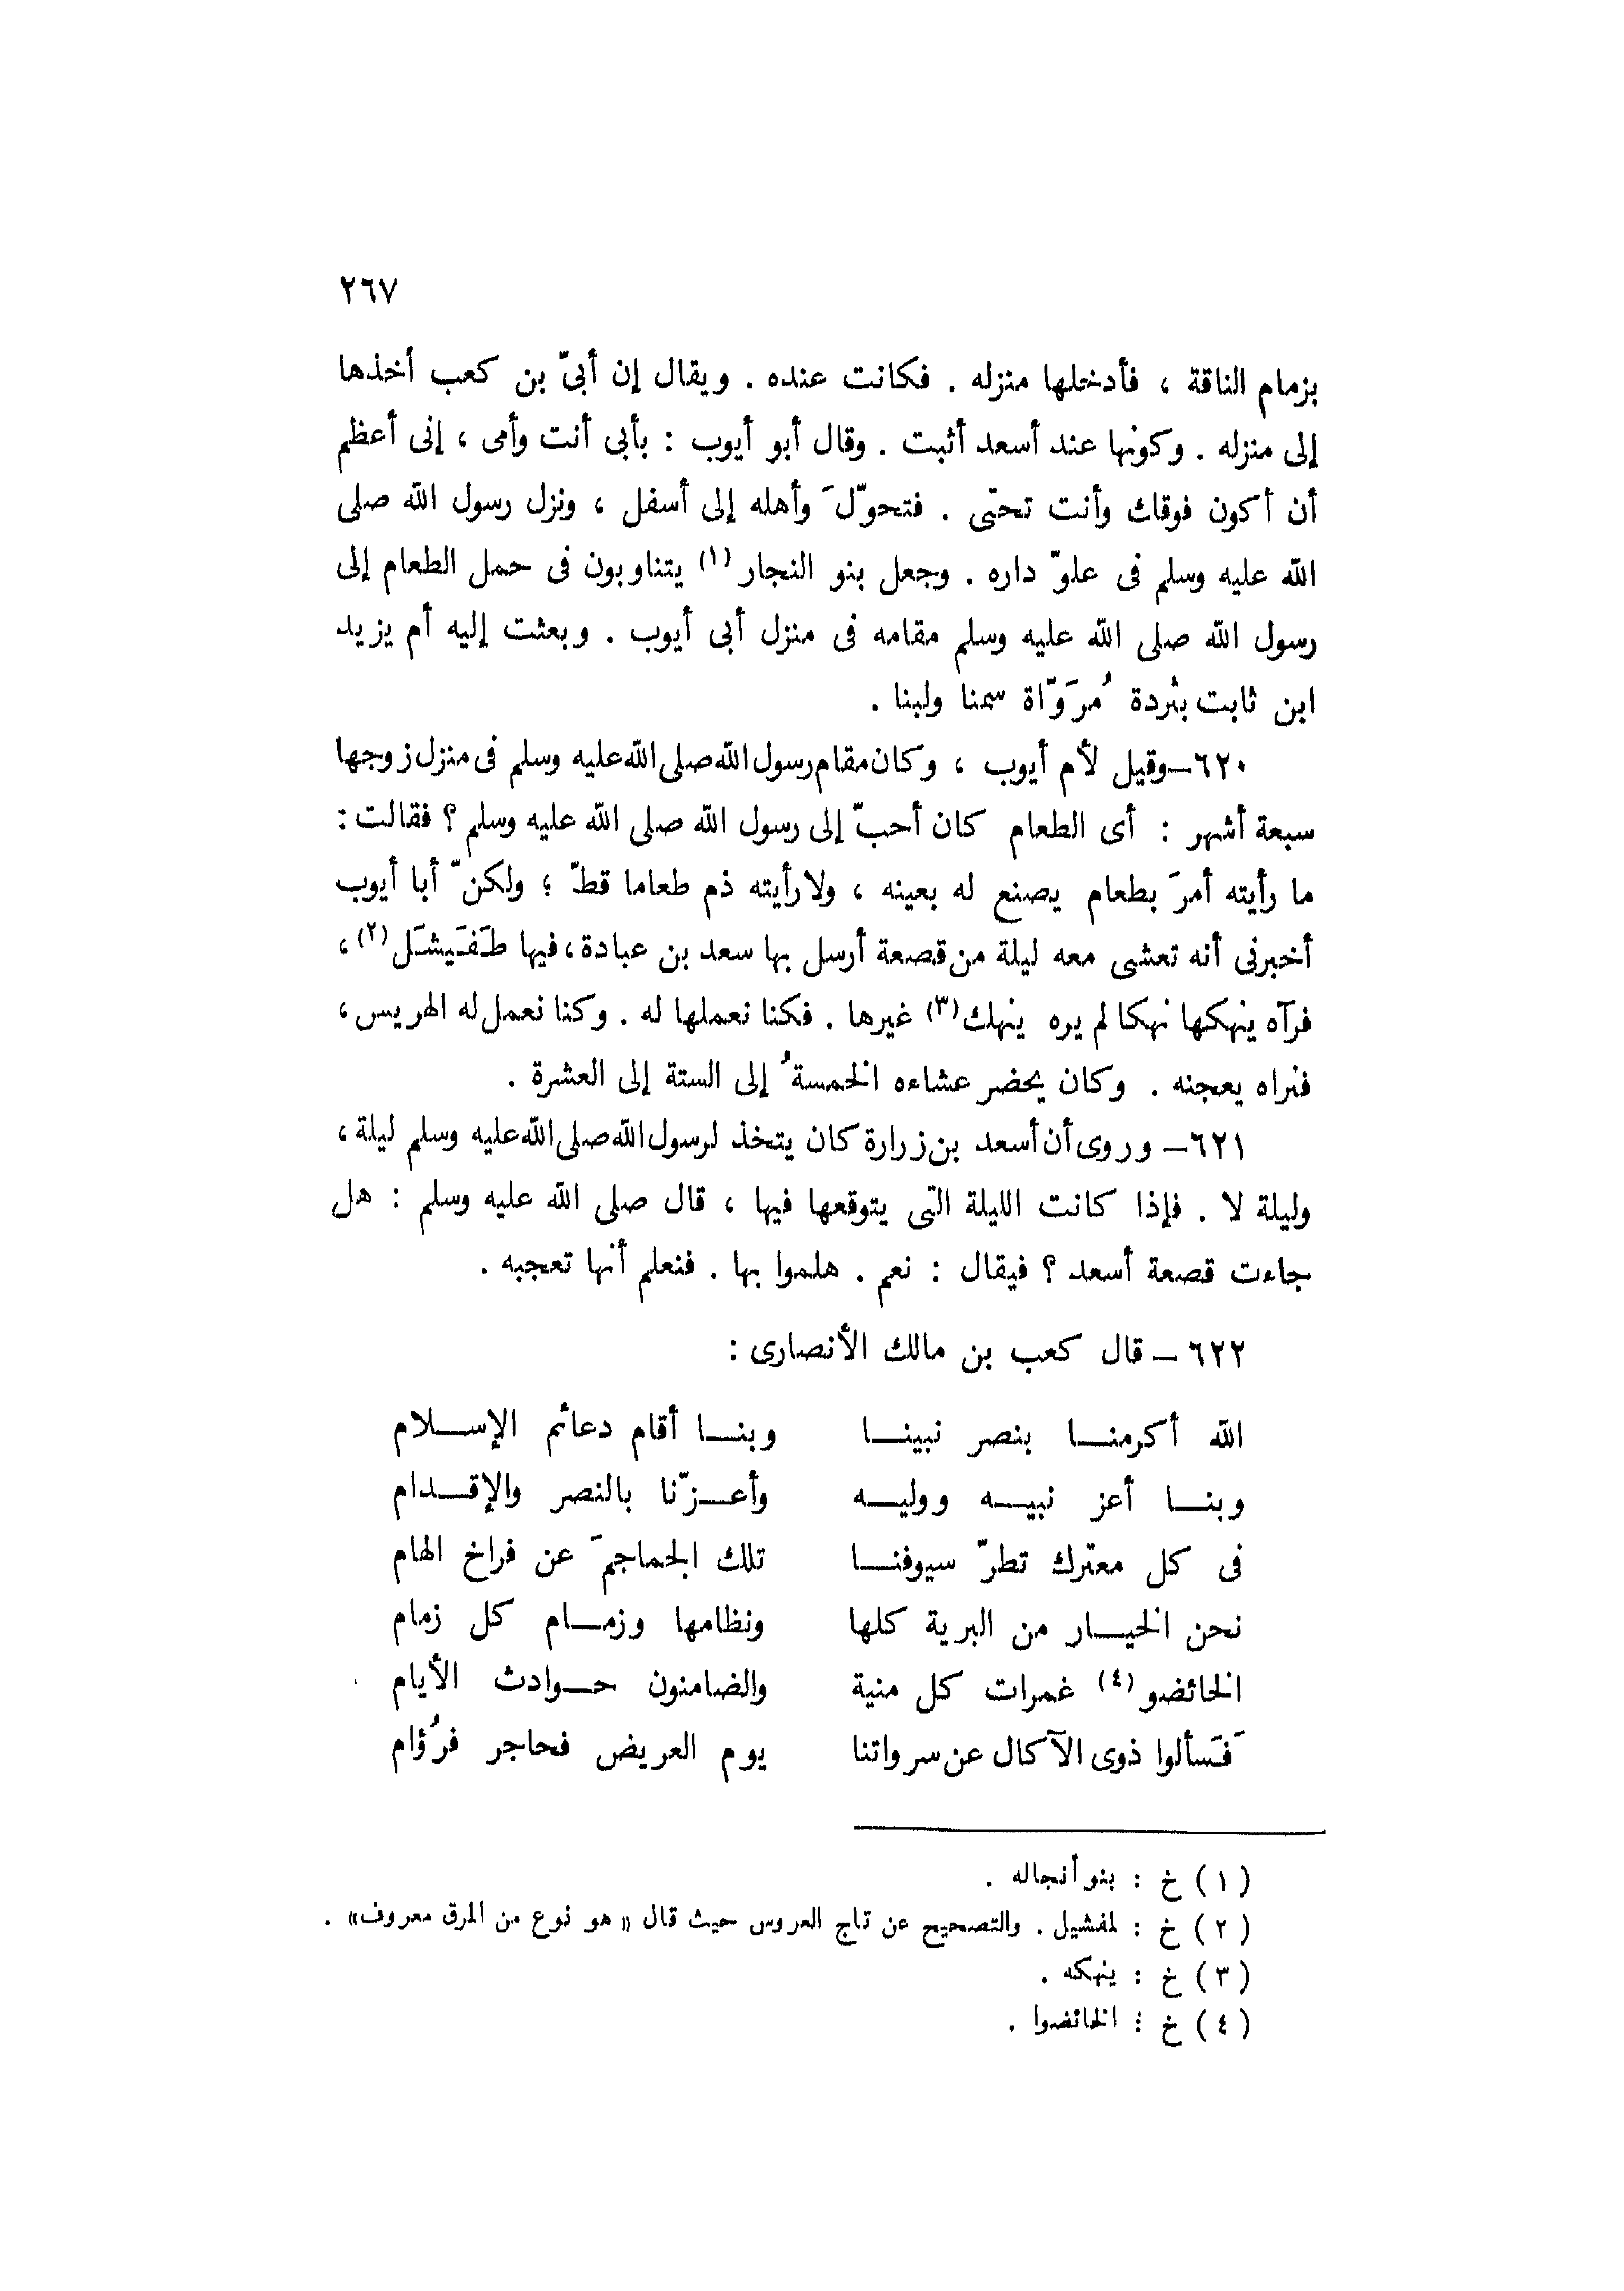 ٢٦٧
بزمام الناقة ، فأدخلها منزله . فكانت عنده . ويقال إن أبىّ بن كعب أخذها
إلى منزله . وكونها عند أسعد أثبت . وقال أبو أيوب : بأبى أنت وأمى ، إنى أعظم
أن أكون فوقك وأنت تحتى . فتحوّلَ وأهله إلى أسفل ، ونزل رسول الله صلى
الله عليه وسلم فى علوّ داره . وجعل بنو النجار (١) يتناوبون فى حمل الطعام إلى
رسول الله صلى الله عليه وسلم مقامه فى منزل أبى أيوب . وبعثت إليه أم يزيد
ابن ثابت بثردة مُرَوّاة سمنا ولبنا .
٦٢٠ــ وقيل لأم أيوب ، وكان مقام رسول الله صلى الله عليه وسلم فى منزل زوجها
سبعة أشهر : أى الطعام كان أحبّ إلى رسول الله صلى الله عليه وسلم ؟ فقالت :
ما رأيته أمرَ بطعام يصنع له بعينه ، ولا رأيته ذم طعاما قطّ ؛ ولكنّ أبا أيوب
أخبرنى أنه تعشى معه ليلة من قصعة أرسل بها سعد بن عبادة ، فيها طَفَيشَل (٢) ،
فرآه ينهكها نهكا لم يره ينهك (٣) غيرها . فكنا نعملها له . وكنا نعمل له الهريس ،
فنراه يعجنه . وكان يحضر عشاءه الخمسةُ إلى الستة إلى العشرة .
٦٢١ــ وروى أن أسعد بن زرارة كان يتخذ لرسول الله صلى الله عليه وسلم ليلة ،
وليلة لا . فإذا كانت الليلة التى يتوقعها فيها ، قال صلى الله عليه وسلم : هل
جاءت قصعة أسعد ؟ فيقال : نعم . هلموا بها . فنعلم أنها تعجبه .
٦٢٢ــ قال كعب بن مالك الأنصارى :
الله أكرمنا بنصر نبينا وبنا أقام دعائم الإسلام
وبنا أعز نبيه ووليه وأعزّنا بالنصر والإقدام
فى كل معترك تطرّ سيوفنا تلك الجماجمَ عن فراخ الهام
نحن الخيار من البرية كلها ونظامها وزمام كل زمام
الخائضو (٤) غمرات كل منية والضامنون حوادث الأيام
فَسألوا ذوى الآكال عن سرواتنا يوم العريض فحاجر فرُؤام
(١) خ : بنو أنجاله .
(٢) خ : لمفشيل . والتصحيح عن تاج العروس حيث قال « هو نوع من المرق معروف» .
(٣) خ : ينهكه .
(٤) خ : الخائضوا .